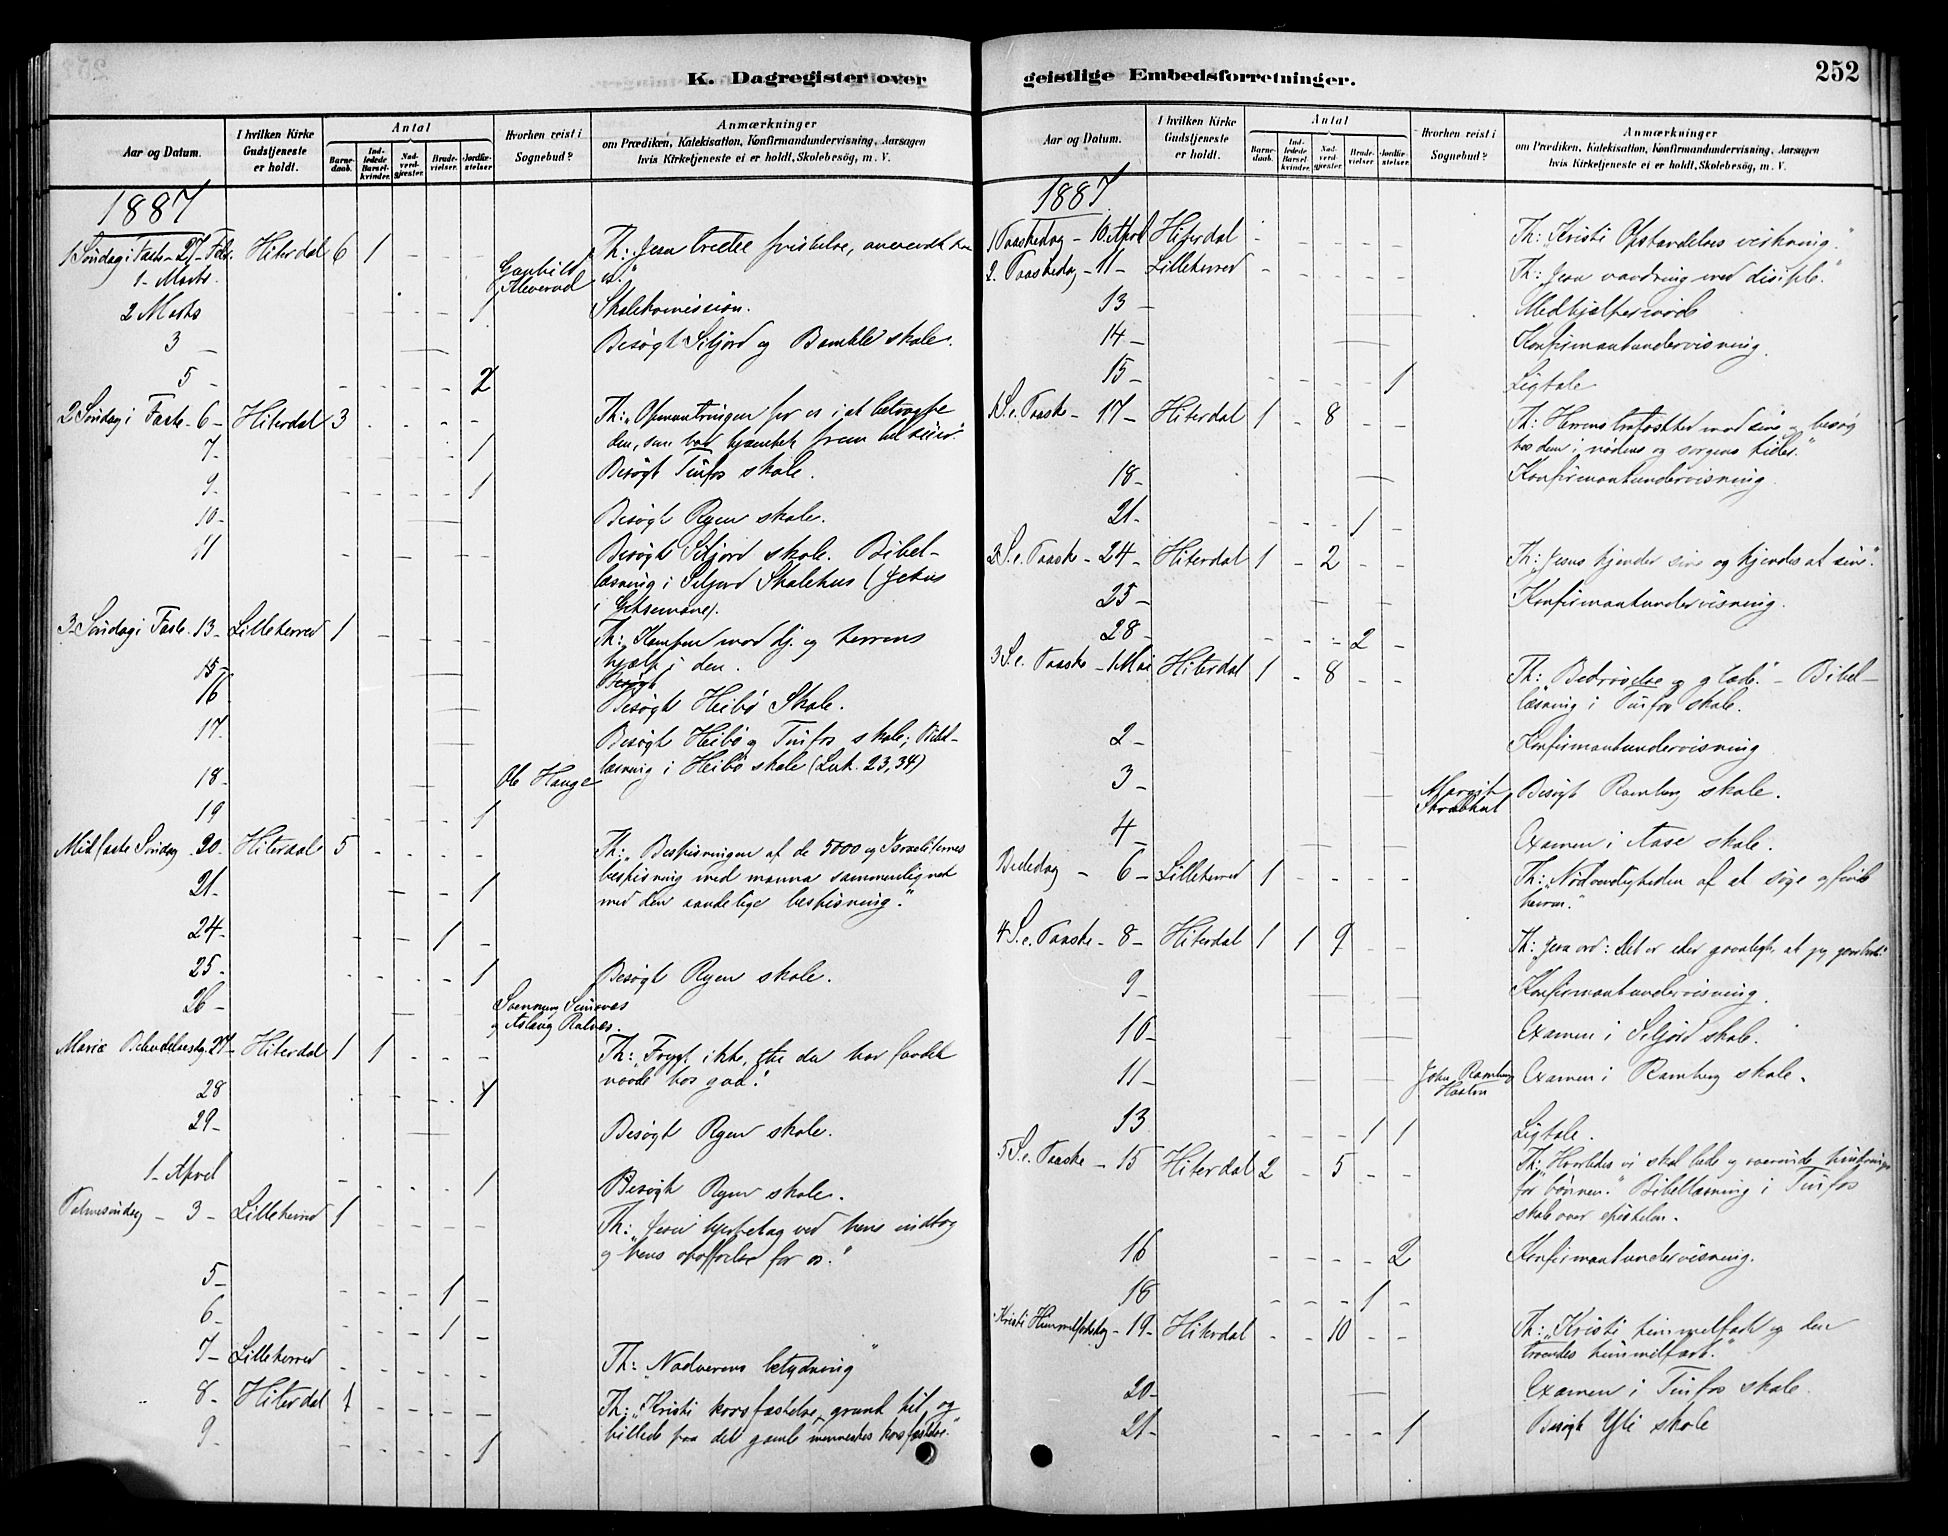 K. Dagregister over
Aar og Datum.
I hvilken Kirke Gudstjeneste er holdt.
Antal
Barne-daab.
Ind-ledede Barsel-kvinder.
Nad-verd-gjester.
Brude-vielser.
Jordfæ-stelser.
Hvorhen reist i Sognebud?
Anmærkninger
om Prædiken, Katekisation, Konfirmandundervisning, Aarsagen
hvis Kirketjeneste ei er holdt, Skolebesøg, m. V.
1887
1 Søndag i Faste - 27 - Febr. Hiterdal 6 1 - - - Th: "Jesu tredie fristelse, anvendt
1 - Marts. Gunhild
2 Marts - - - - 1 Skolekomission.
3 - Besøgt Siljord og Bamble skole.
5 - - - - - 2
2 Søndag i Faste - 6 - Hiterdal 3 - - - - Th: "Opmuntringen for os i at betragte
den, som har kjæmpet frem til seier."
7 - - - - - 1 Besøgt Tinfos skole.
9 - - - - - 1
10 - Besøgt Ryen skole.
11 Besøgt Siljord skole. Bibel-
læsning i Siljord Skolehus (Jesus
i Getsemane).
3 Søndag i Faste. 13 - Lilleherred 1 - - - - Th: "Kampen mod dj. og herrens
hjælp i den.
15 - Besøgt
16 Besøgt Heibø Skole.
17 - Besøgt Heibø og Tinfos skole; Bibel-
læsning i Heibø skole (Luk. 23,34)
18 - Ole Hauge
19 - - - - 1
Midfaste Søndag - 20 - Hiterdal 5 - - - - Th: "Bespisningen af de 5000 og Israeliternes
bespisning med manna sammenlignet
med den aandelige bespisning."
21 - 1
24 - - - - 1 -
25 - - - - - 1 Besøgt Ryen skole.
26 -
og Aslaug
Mariæ Bebudelsesdag 27 - Hiterdal 1 1 - - - Th: "Frygt ikke, thi du har fundet
naade hos gud."
28
29 - Besøgt Ryen skole.
1 - April - - - - 1 Besøgt Ryen skole.
Palmesøndag - 3 - Lilleherred 1 - - - - Th: "Jesu ved hans indtog
og hans opoffrelse for os."
5 - - - - 1 -
6 - - - - 1 -
7 - Lilleherred - - - - - Th: "Nadverens betydning"
8 - Hiterdal 1 - - - - Th: "Kristi korsfæstelse, grund til og
billede paa det gamle menneskes korsfæstelse."
9 - - - - - 1
geistlige Embedsforretninger.
252
Aar og Datum.
I hvilken Kirke Gudstjeneste er holdt.
Antal
Barne-daab.
Ind-ledede Barsel-kvinder.
Nad-verd-gjester.
Brude-vielser.
Jordfæ-stelser.
Hvorhen reist i Sognebud?
Anmærkninger
om Prædiken, Katekisation, Konfirmandundervisning, Aarsagen
hvis Kirketjeneste ei er holdt, Skolebesøg, m. V.
1887
1 Paaskedag - 10. April Hiterdal - Th: "Kristi Opstandelses virkning."
2. Paaskedag - 11 - Lilleherred - - - - - Th: "Jesu vandring med disiple."
13 - Medhjælpermøde
14 - Konfirmantundervisning.
15 - - - - - 1 Ligtale
1 S. e. Paaske - 17 - Hiterdal 1 - 8 - - Th: "Herrens trofasthed mod sine og besøg
hos dem i nødens og sorgens tider."
18 - Konfirmantundervisning.
21 - - - - 1 -
2 S. e. Paaske - 24 - Hiterdal 1 - 2 - - Th: "Jesus kjender sine og kjendes at sine."
25 - Konfirmantundervisning.
28 - - - - 2 -
3 S. e. Paaske - 1 Mai Hiterdal 1 - 8 - - Th: "Bedrøvelse og glæde." - Bibel-
læsning i Tinfos skole.
2 - Konfirmantundervisning
3 - Margit Besøgt Ramberg skole.
4 - Examen i Aase skole.
Bededag - 6 - Lilleherred 1 - - - - Th: "Nødvendigheden af at søge og finde
herren."
4 S. e. Paaske - 8 - Hiterdal 1 1 9 - - Th: "Jesu ord: Det er eder gavnligt, at jeg gaar bort."
9 - Konfirmantundervisning.
10 - Examen i Siljord skole.
11 - John Ramberg Examen i Ramberg skole.
13 - - - 1 1 Ligtale.
5 S. e. Paaske - 15 Hiterdal 2 - 5 - - Th: "Hvorledes vi skal lede og overvinde hindringer
for bønnen." Bibellæsning i Tinfos
skole over epistelen.
16 - - - - 2 Konfirmantundervisning.
18 - - - 1 -
Kristi Himmelfartsdag - 19 - Hiterdal - - 10 - - Th: "Kristi himmelfart og den
troendes himmelfart."
20 - Examen i Tinfos skole.
21 - - - - - 1 Besøgt Yli skole